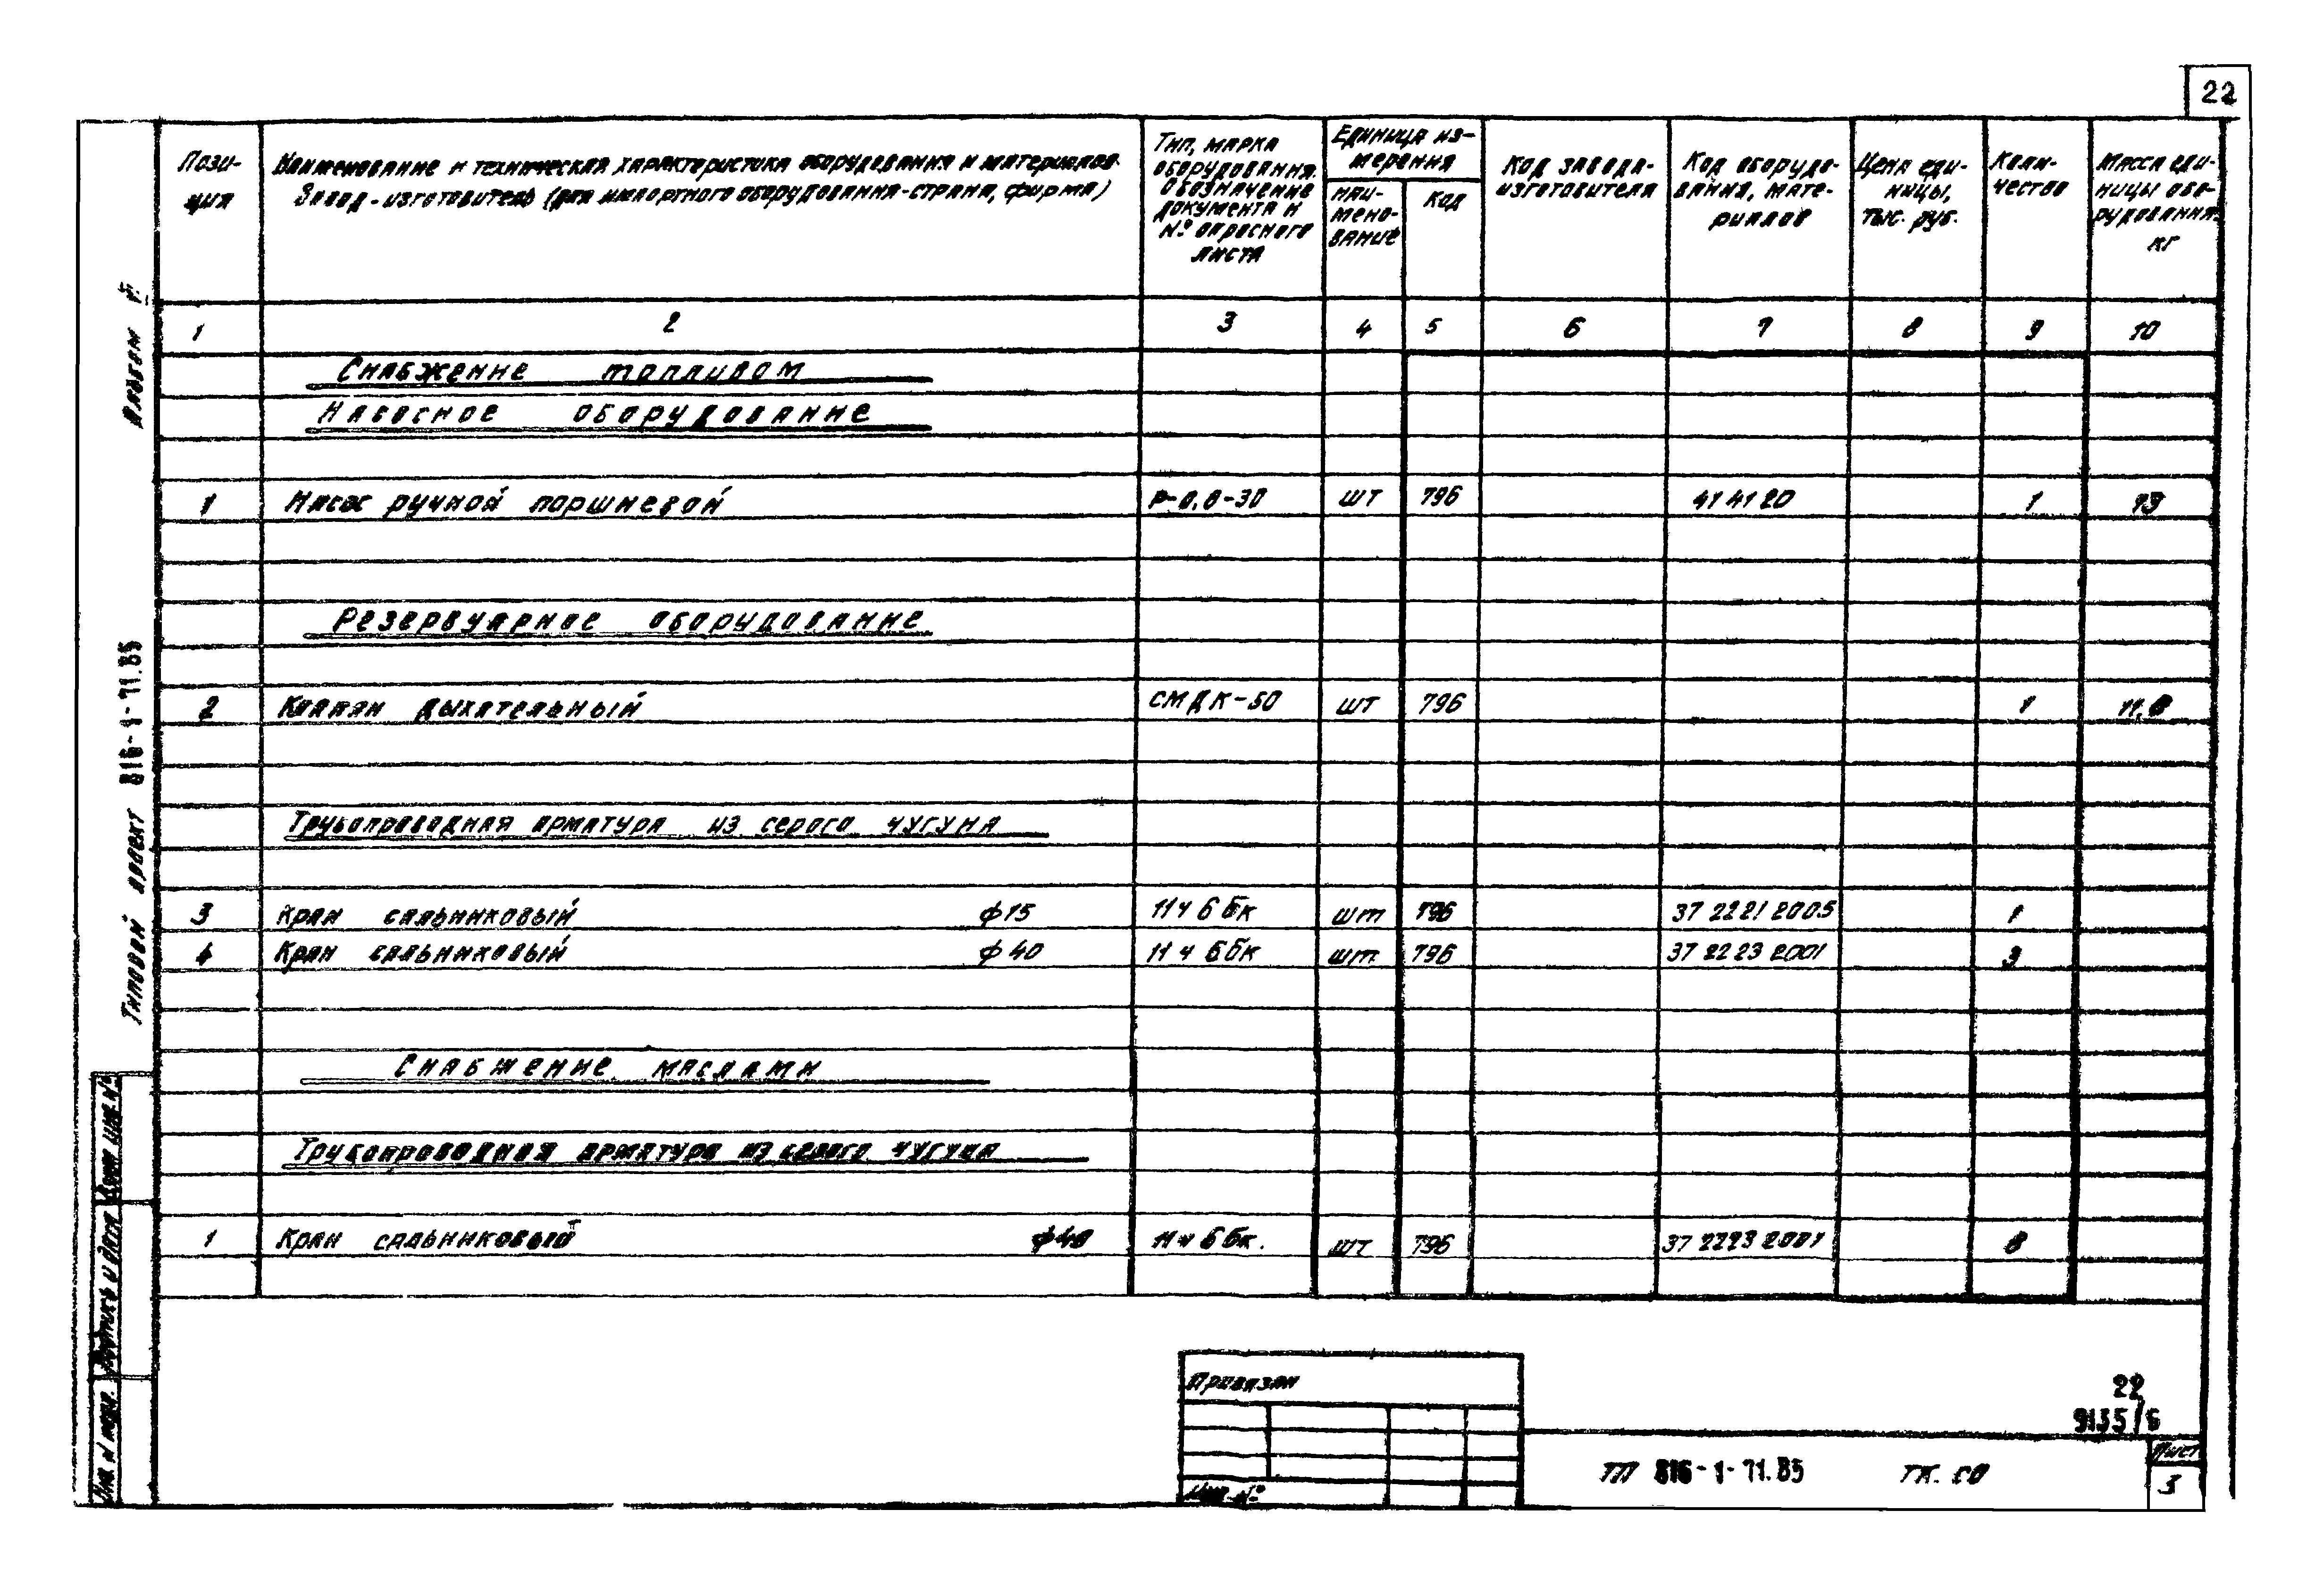 22
Пози-
ция
Наименование и техническая характеристика оборудования и материалов.
Завод-изготовитель (для импортного оборудования-страна, фирма)
Тип, марка
оборудования.
Обозначение
документа и
№ опросного
листа
Единица из-
мерения
наи-
мено-
вание
Код
Код завода-
изготовителя
Код оборудо-
вания, мате-
риалов
Цена еди-
ницы,
тыс. руб.
Коли-
чество
Масса еди-
ницы обо-
рудования.
кг
1 2 3 4 5 6 7 8 9 10
Снабжение топливом
Насосное оборудование
1 Насос ручной поршневой Р-0,8-30 шт 796 41 41 20 1 13
Резервуарное оборудование
2 Клапан дыхательный СМДК-50 шт 796 1
Трубопроводная арматура из серого чугуна
3 Кран сальниковый ф15 11ч 6 бк шт 796 37 2221 2005 1
4 Кран сальниковый ф40 11ч 6 бк шт. 796 37 22 23 2001
Снабжение маслами
Трубопроводная арматура из серого чугуна
1 Кран сальниковый ф40 11ч 6 бк. шт 796 37 2223 2001
Альбом
Типовой проект 816-1-71.85
Взам инв.№
Подпись и дата
Инв. № подл.
Привязан
Инв. №
22
9135/6
ТП 816-1-71.85 ТК. СО
Лист
3